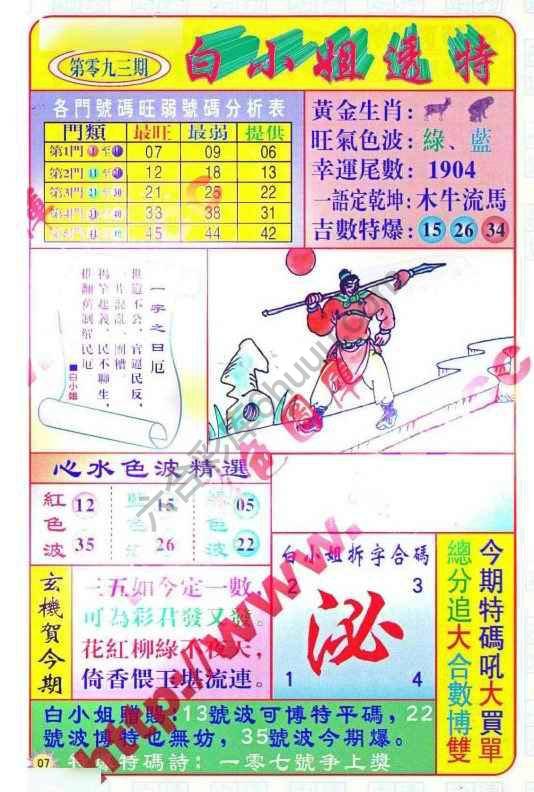 第零九三期
白小姐透特
各門號碼旺弱號碼分析表
門類 最旺 最弱 提供
第1門 07 09 06
第2門 12 18 13
第3門 21 25 22
第4門 33 38 31
第5門 45 44 42
黃金生肖：
旺氣色波：綠、藍
幸運尾數：1904
一語定乾坤：木牛流馬
吉數特爆：15 26 34
一字之曰厄
世道不公，官逼民反，
一片混亂，
揭竿起義，民不聊生，
推翻舊制解民厄
■白小姐
心水色波精選
紅色波 12 35
15 26
05 22
玄機賀今期
三五如今定一數，
可為彩君發又發。
花紅柳綠不夜天，
倚香偎玉堪流連。
白小姐拆字合碼
2 3
泌
1 4
今期特碼吼大買單
總分追大合數博雙
白小姐贈賜：13號波可博特平碼，22
號波博特也無妨，35號波今期爆。
特碼詩：一零七號爭上獎
07
六合彩
www.
http://